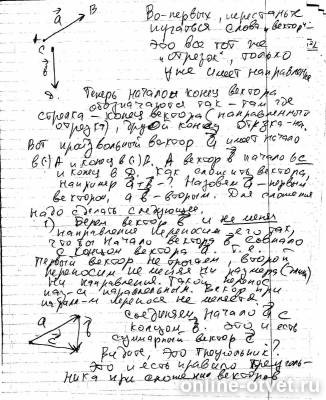 a
B
Во-первых, перестаньте
пугаться слова "вектор".
C
Это все тот же
"отрезок", только
b
уже имеет направление
D
Теперь начало и конец вектора
обозначаются так - там где
стрелка - конец вектора (направленного
отрезка), другой конец отрезка - на.
Вот произвольный вектор a имеет начало
в(·)A и конец в(·)B. А вектор b начало в C
и конец в D. Как сложить вектора,
например a + b - ? Назовем a - первый
вектором, а b - вторым. Для сложения
надо сделать следующее
1) Берем вектор b и не меняя
направление переносим его так,
чтобы начало вектора b совпало
с концом вектора a. Т.е.
Первый вектор не трогаем, второй
переносим не меняя ни размера (длины)
ни направления. Такой перенос
наз-я параллельным. Вектор при
паралл-м переносе не меняется
Соединяем начало a с
a
концом b. Это и есть
b
суммарный вектор c
c
Видите, это треугольник?
Это и есть правило треуголь-
ника при сложении векторов
online-otvet.ru